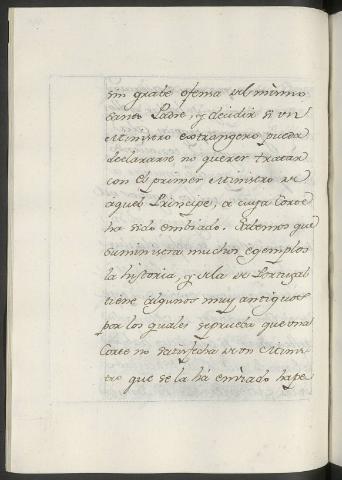 sin grabe ofensa del mismo
Santo Padre, y decidir si un
Ministro extrangero pueda
declararse no querer tratar
con el primer Ministro de
aquel Principe, a cuya Corte
ha sido embiado. Extremos que
suministra muchos egemplos
la historia, y de la de Portugal
tiene algunos muy antiguos
por los quales se prueba que una
Corte no satisfecha de un Minis-
tro que se la ha enviado hape